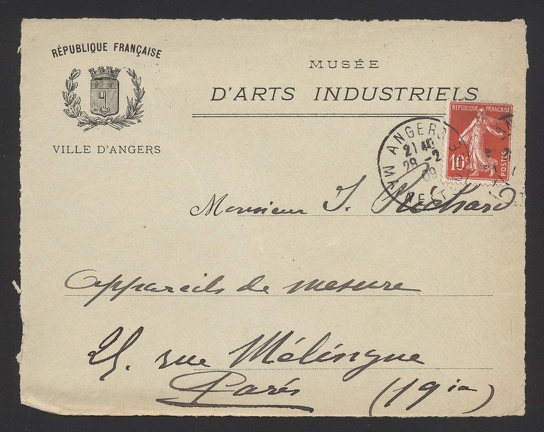 RÉPUBLIQUE FRANÇAISE
VILLE D'ANGERS
MUSÉE
D'ARTS INDUSTRIELS
RÉPUBLIQUE FRANÇAISE
10c
POSTES
ANGERS
21 40
29 -2
09
Monsieur J. Richard
appareils de mesure
25, rue Mélingue
Paris (19ie)